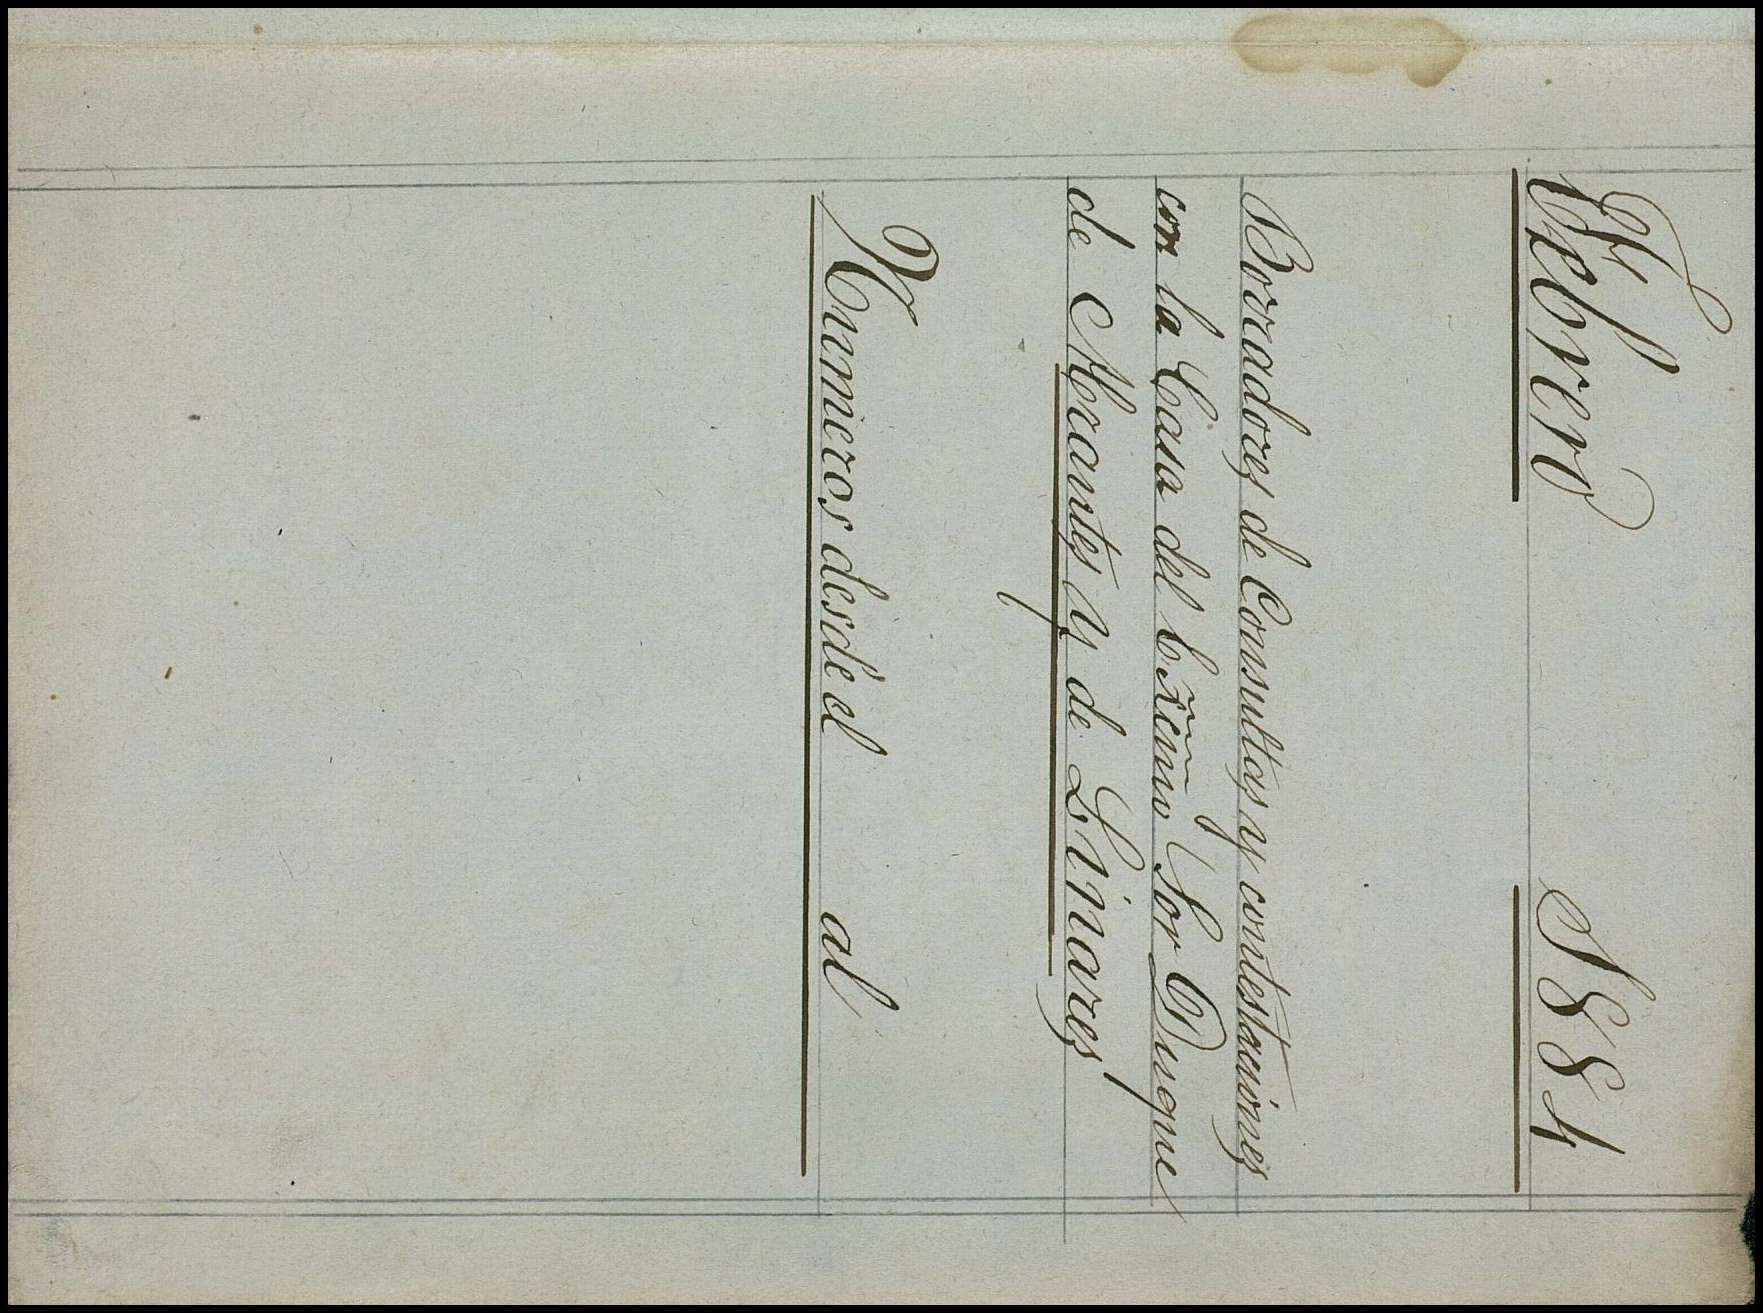 Febrero 1884
Borradores de Consultas y contestaciónes
con la Casa del Excmo Sor Duque
de Abrantes y de Linares
Números desde el al